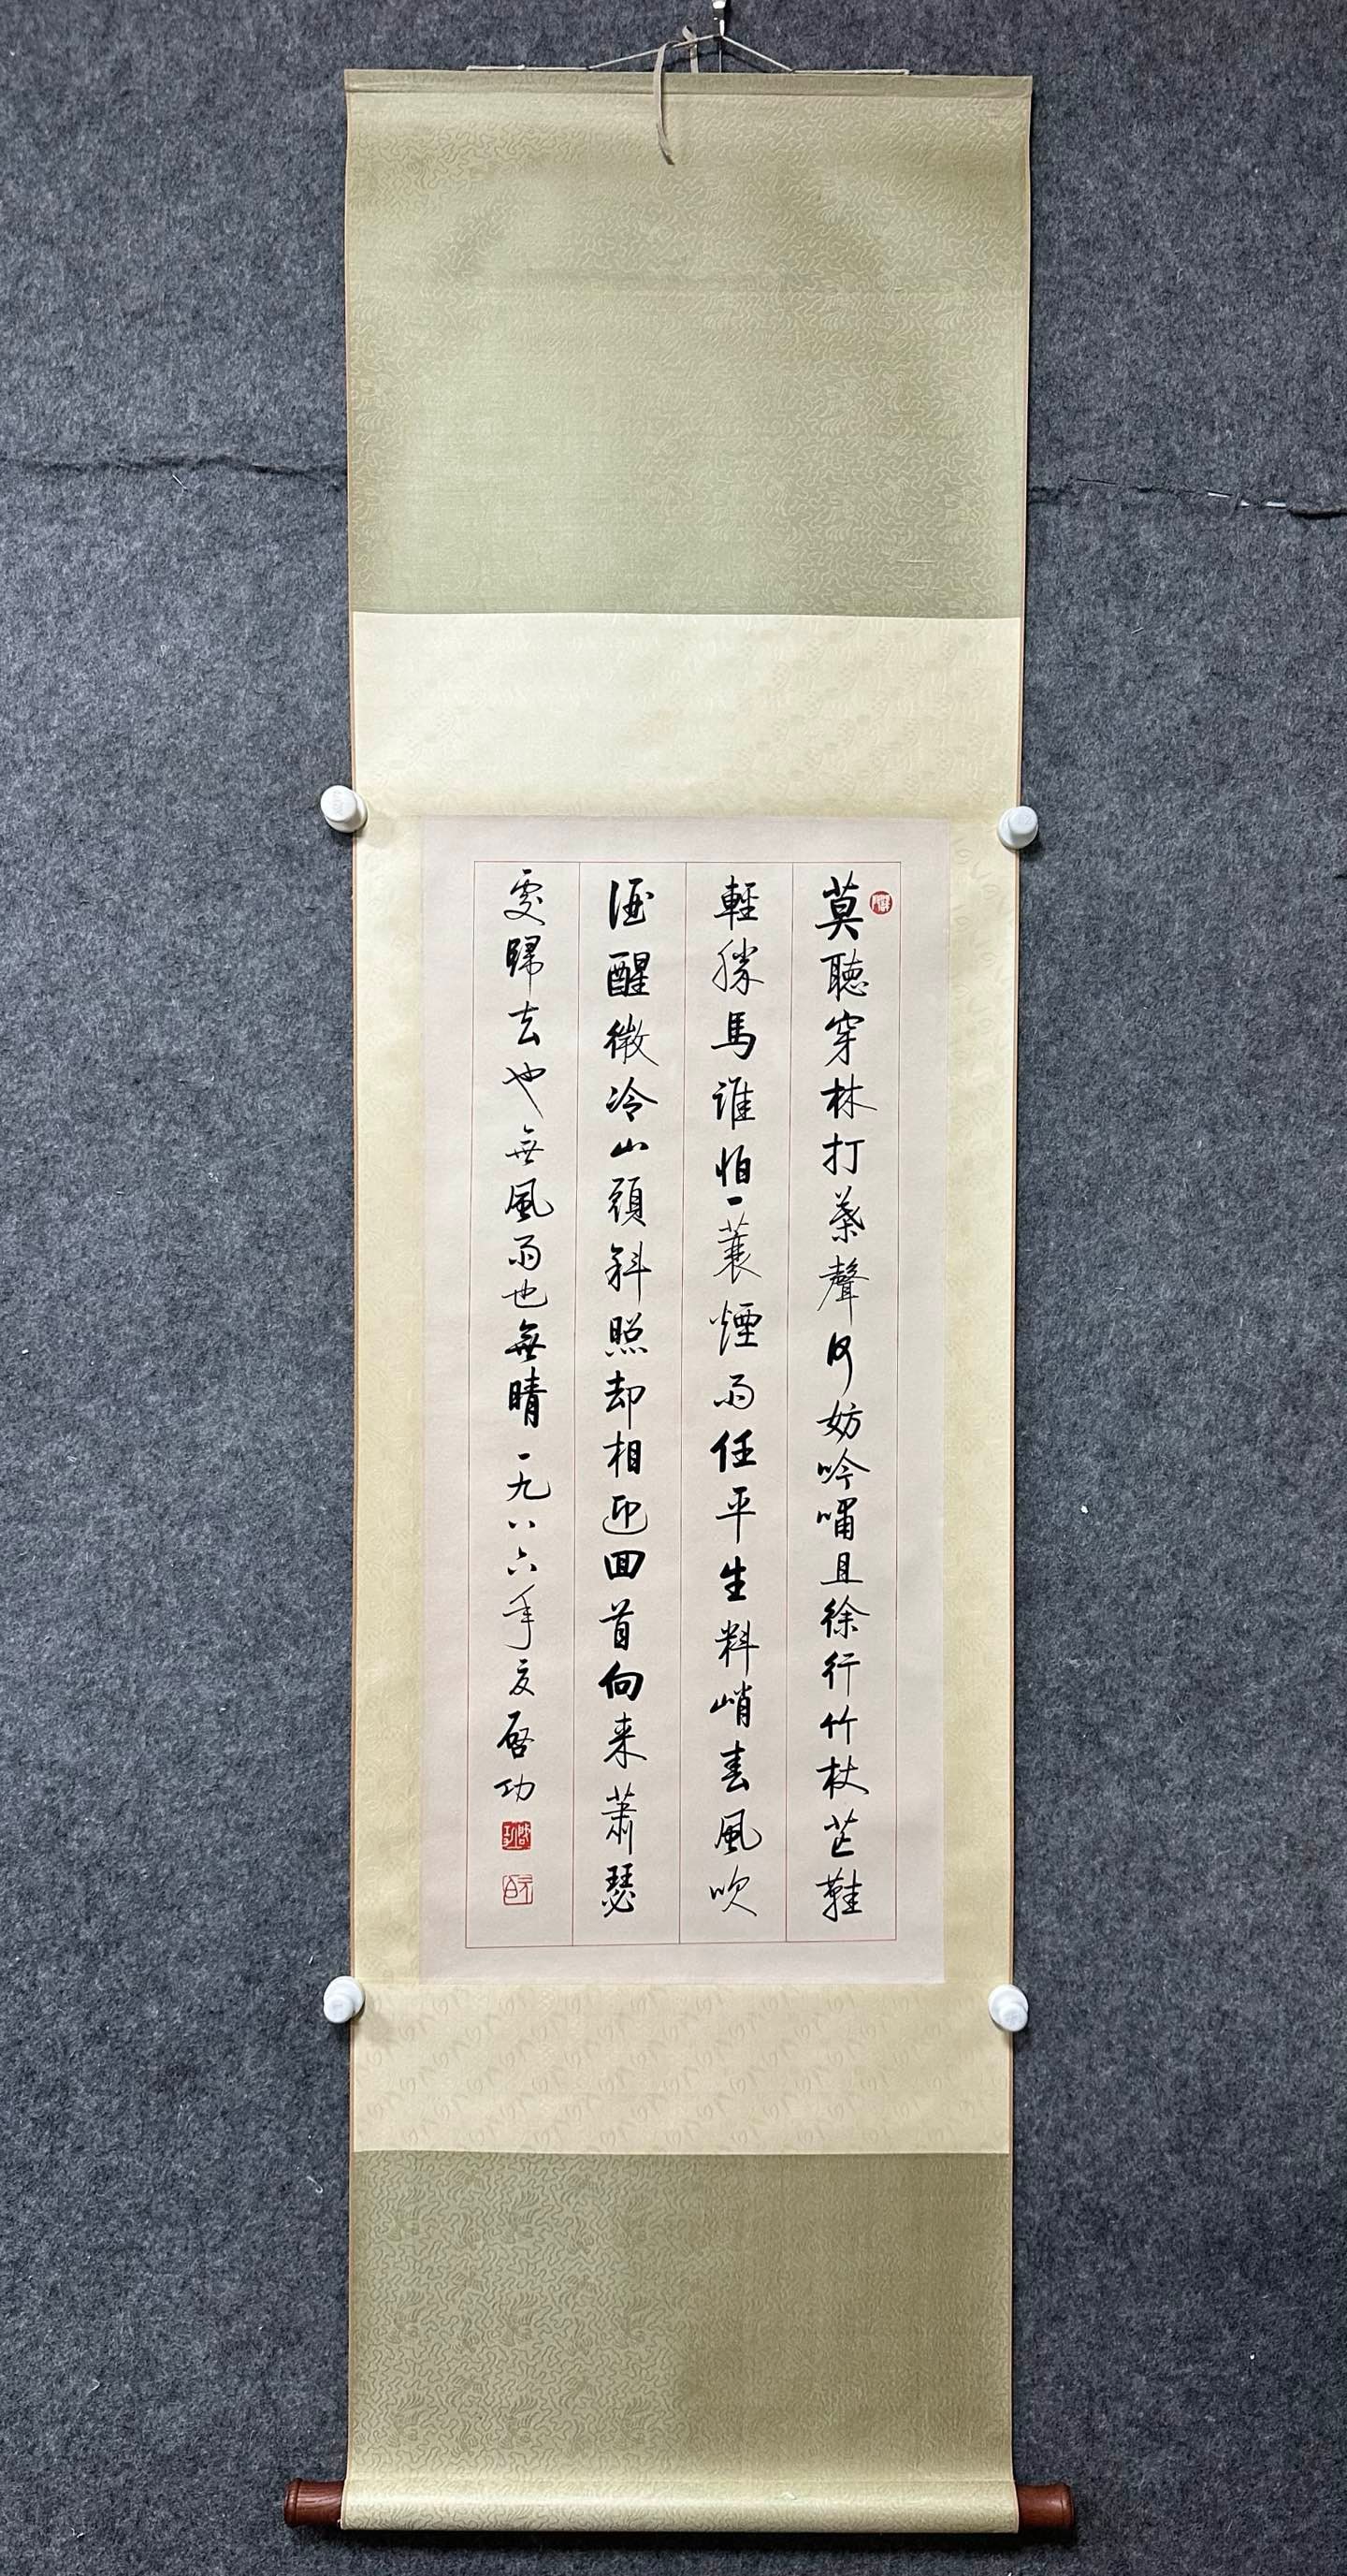 莫聽穿林打葉聲何妨吟嘯且徐行竹杖芒鞋
輕勝馬誰怕一蓑煙雨任平生料峭春風吹
酒醒微冷山頭斜照却相迎回首向来蕭瑟
處歸去也無風雨也無晴一九八六年夏啓功
啓功
元白